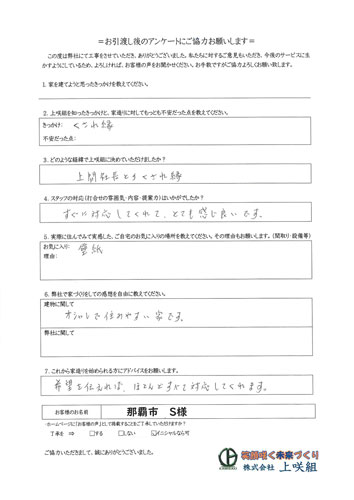 ＝お引渡し後のアンケートにご協力お願いします＝
この度は弊社にて工事をさせていただき、ありがとうございました。私たちに対するご意見もいただき、今後のサービスに生
かすようにしているため、よろしければ、お客様の声をお聞かせください。お手数ですがご協力よろしくお願い致します。
1. 家を建てようと思ったきっかけを教えてください。
2. 上咲組を知ったきっかけと、家造りに対してもっとも不安だった点を教えてください。
きっかけ： くされ縁
不安だった点：
3. どのような経緯で上咲組に決めていただけましたか？
上間社長とのくされ縁
4. スタッフの対応（打合せの雰囲気・内容・提案力）はいかがでしたか？
すぐに対応してくれて、とても感じ良いです。
5. 実際に住んでみて実感した、ご自宅のお気に入りの場所を教えてください。その理由もお願いします。（間取り・設備等）
お気に入り： 壁紙
理由：
6. 弊社で家づくりをしての感想を自由に教えてください。
建物に関して
オシャレで住みやすい家です。
弊社に関して
7. これから家造りを始められる方にアドバイスをお願いします。
希望を伝えれば、ほとんどすべて対応してくれます。
お客様のお名前 那覇市 S様
・ホームページに「お客様の声」として掲載することをご了承していただけますか？
了承を ⇒ □する □しない ☑イニシャルなら可
ご協力いただきまして、誠にありがとうございました。
笑顔咲く未来づくり
株式会社 上咲組